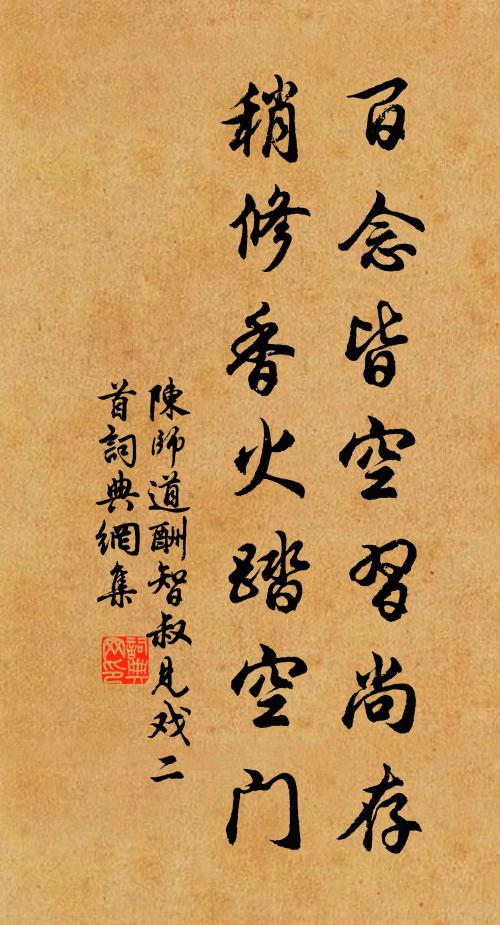 百念皆空習尚存
稍修香火踏空门
陳師道酬智叔見戏二
首詞典網集
詞典
网印